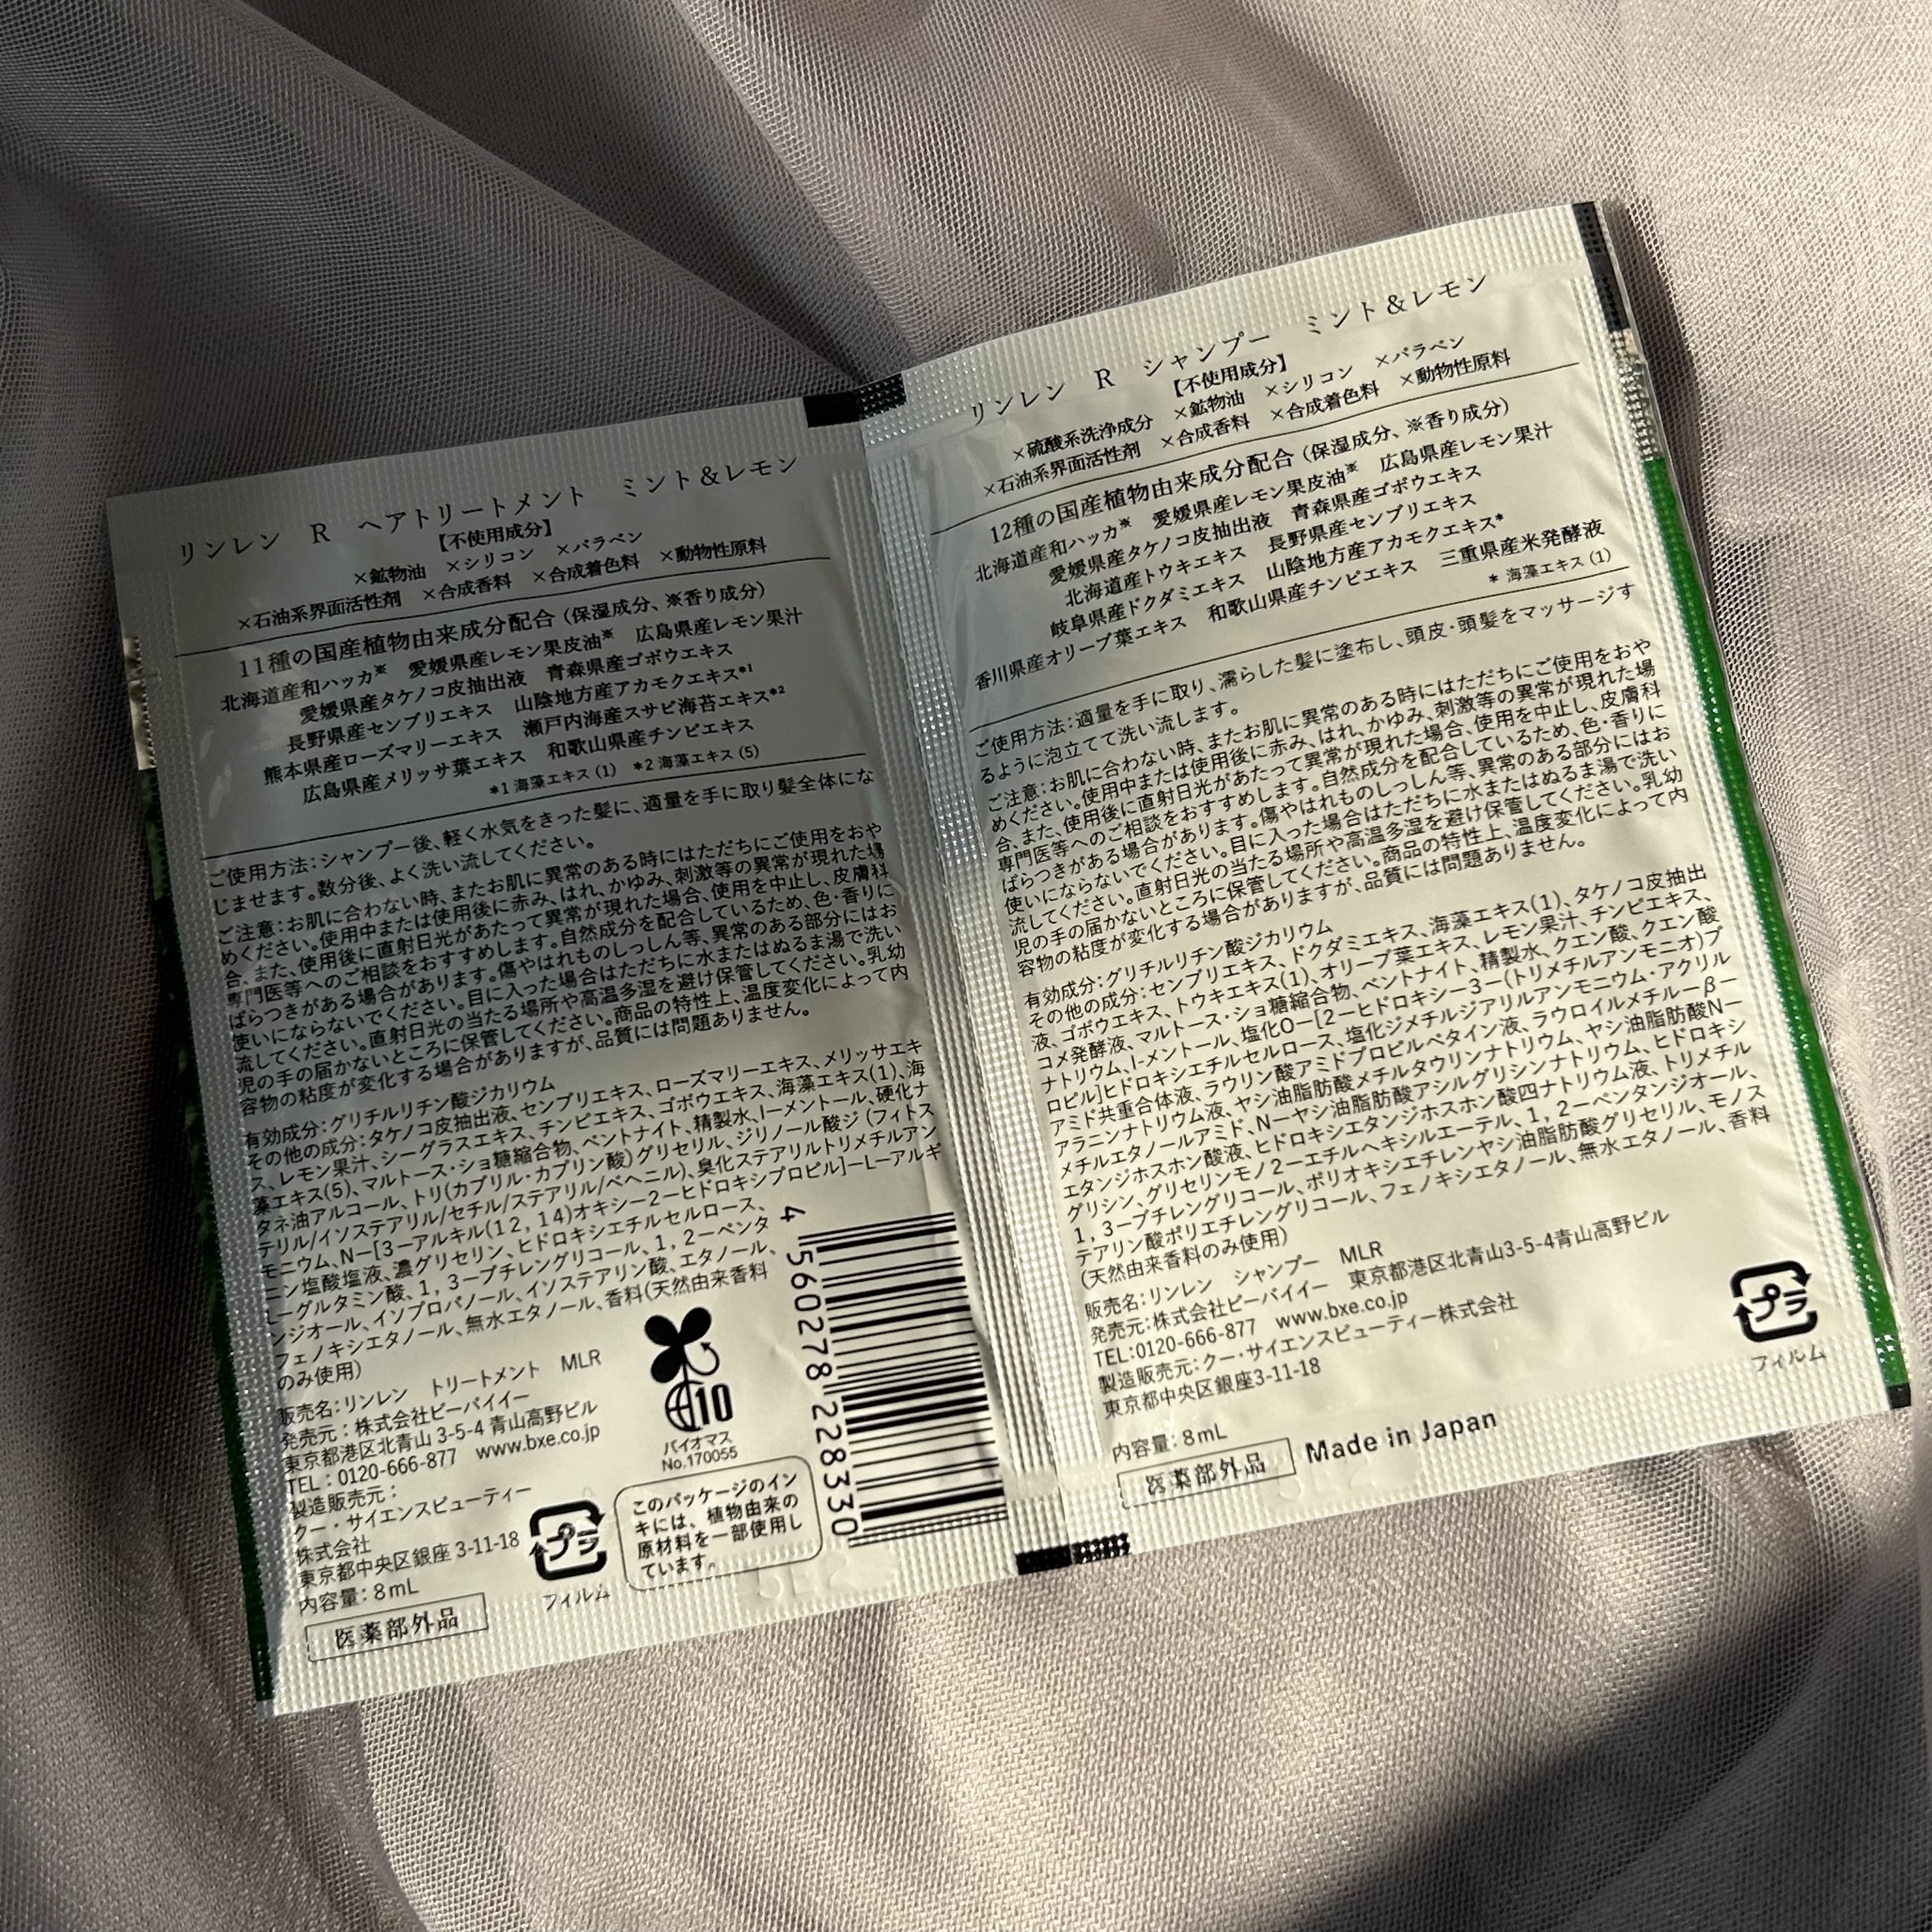 リンレン R ヘアトリートメント ミント&レモン
【不使用成分】
×鉱物油 ×シリコン ×パラベン
×石油系界面活性剤 ×合成香料 ×合成着色料 ×動物性原料
11種の国産植物由来成分配合(保湿成分、※香り成分)
北海道産和ハッカ※ 愛媛県産レモン果皮油※ 広島県産レモン果汁
愛媛県産タケノコ皮抽出液 青森県産ゴボウエキス
長野県産センブリエキス 山陰地方産アカモクエキス*1
熊本県産ローズマリーエキス 瀬戸内海産スサビ海苔エキス*2
広島県産メリッサ葉エキス 和歌山県産チンピエキス
*1 海藻エキス(1) *2 海藻エキス(5)
ご使用方法:シャンプー後、軽く水気をきった髪に、適量を手に取り髪全体にな
じませます。数分後、よく洗い流してください。
ご注意:お肌に合わない時、またお肌に異常のある時にはただちにご使用をおや
めください。使用中または使用後に赤み、はれ、かゆみ、刺激等の異常が現れた場
合、また、使用後に直射日光があたって異常が現れた場合、使用を中止し、皮膚科
専門医等へのご相談をおすすめします。自然成分を配合しているため、色・香りに
ばらつきがある場合があります。傷やはれものしっしん等、異常のある部分にはお
使いにならないでください。目に入った場合はただちに水またはぬるま湯で洗い
流してください。直射日光の当たる場所や高温多湿を避け保管してください。乳幼
児の手の届かないところに保管してください。商品の特性上、温度変化によって内
容物の粘度が変化する場合がありますが、品質には問題ありません。
有効成分:グリチルリチン酸ジカリウム
その他の成分:タケノコ皮抽出液、センブリエキス、ローズマリーエキス、メリッサエキ
ス、レモン果汁、シーグラスエキス、チンピエキス、ゴボウエキス、海藻エキス(1)、海
藻エキス(5)、マルトース・ショ糖縮合物、ベントナイト、精製水、l-メントール、硬化ナ
タネ油アルコール、トリ(カプリル・カプリン酸)グリセリル、ジリノール酸ジ(フィトス
テリル/イソステアリル/セチル/ステアリル/ベヘニル)、臭化ステアリルトリメチルアン
モニウム、N-[3-アルキル(12,14)オキシ-2-ヒドロキシプロピル]-L-アルギ
ニン塩酸塩液、濃グリセリン、ヒドロキシエチルセルロース、
L-グルタミン酸、1,3-ブチレングリコール、1,2-ペンタ
ンジオール、イソプロパノール、イソステアリン酸、エタノール、
フェノキシエタノール、無水エタノール、香料(天然由来香料
のみ使用)
販売名:リンレン トリートメント MLR
発売元:株式会社ビーバイイー
東京都港区北青山 3-5-4 青山高野ビル
TEL:0120-666-877 www.bxe.co.jp
製造販売元:
クー・サイエンスビューティー
株式会社
東京都中央区銀座 3-11-18
内容量:8mL
医薬部外品
プラ
フィルム
10
バイオマス
No.170055
このパッケージのイン
キには、植物由来の
原材料を一部使用し
ています。
4 560278 228330
リンレン R シャンプー ミント&レモン
【不使用成分】
×硫酸系洗浄成分 ×鉱物油 ×シリコン ×パラベン
×石油系界面活性剤 ×合成香料 ×合成着色料 ×動物性原料
12種の国産植物由来成分配合(保湿成分、※香り成分)
北海道産和ハッカ※ 愛媛県産レモン果皮油※ 広島県産レモン果汁
愛媛県産タケノコ皮抽出液 青森県産ゴボウエキス
北海道産トウキエキス 長野県産センブリエキス
岐阜県産ドクダミエキス 山陰地方産アカモクエキス*
香川県産オリーブ葉エキス 和歌山県産チンピエキス 三重県産米発酵液
* 海藻エキス(1)
ご使用方法:適量を手に取り、濡らした髪に塗布し、頭皮・頭髪をマッサージす
るように泡立てて洗い流します。
ご注意:お肌に合わない時、またお肌に異常のある時にはただちにご使用をおや
めください。使用中または使用後に赤み、はれ、かゆみ、刺激等の異常が現れた場
合、また、使用後に直射日光があたって異常が現れた場合、使用を中止し、皮膚科
専門医等へのご相談をおすすめします。自然成分を配合しているため、色・香りに
ばらつきがある場合があります。傷やはれものしっしん等、異常のある部分にはお
使いにならないでください。目に入った場合はただちに水またはぬるま湯で洗い
流してください。直射日光の当たる場所や高温多湿を避け保管してください。乳幼
児の手の届かないところに保管してください。商品の特性上、温度変化によって内
容物の粘度が変化する場合がありますが、品質には問題ありません。
有効成分:グリチルリチン酸ジカリウム
その他の成分:センブリエキス、ドクダミエキス、海藻エキス(1)、タケノコ皮抽出
液、ゴボウエキス、トウキエキス(1)、オリーブ葉エキス、レモン果汁、チンピエキス、
コメ発酵液、マルトース・ショ糖縮合物、ベントナイト、精製水、クエン酸、クエン酸
ナトリウム、l-メントール、塩化O-[2-ヒドロキシ-3-(トリメチルアンモニオ)プ
ロピル]ヒドロキシエチルセルロース、塩化ジメチルジアリルアンモニウム・アクリル
アミド共重合体液、ラウリン酸アミドプロピルベタイン液、ラウロイルメチル-β-
アラニンナトリウム液、ヤシ油脂肪酸メチルタウリンナトリウム、ヤシ油脂肪酸N-
メチルエタノールアミド、N-ヤシ油脂肪酸アシルグリシンナトリウム、ヒドロキシ
エタンジホスホン酸液、ヒドロキシエタンジホスホン酸四ナトリウム液、トリメチル
グリシン、グリセリンモノ2-エチルヘキシルエーテル、1,2-ペンタンジオール、
1,3-ブチレングリコール、ポリオキシエチレンヤシ油脂肪酸グリセリル、モノス
テアリン酸ポリエチレングリコール、フェノキシエタノール、無水エタノール、香料
(天然由来香料のみ使用)
販売名:リンレン シャンプー MLR
発売元:株式会社ビーバイイー 東京都港区北青山3-5-4青山高野ビル
TEL:0120-666-877 www.bxe.co.jp
製造販売元:クー・サイエンスビューティー株式会社
東京都中央区銀座3-11-18
内容量:8mL
医薬部外品 Made in Japan
プラ
フィルム